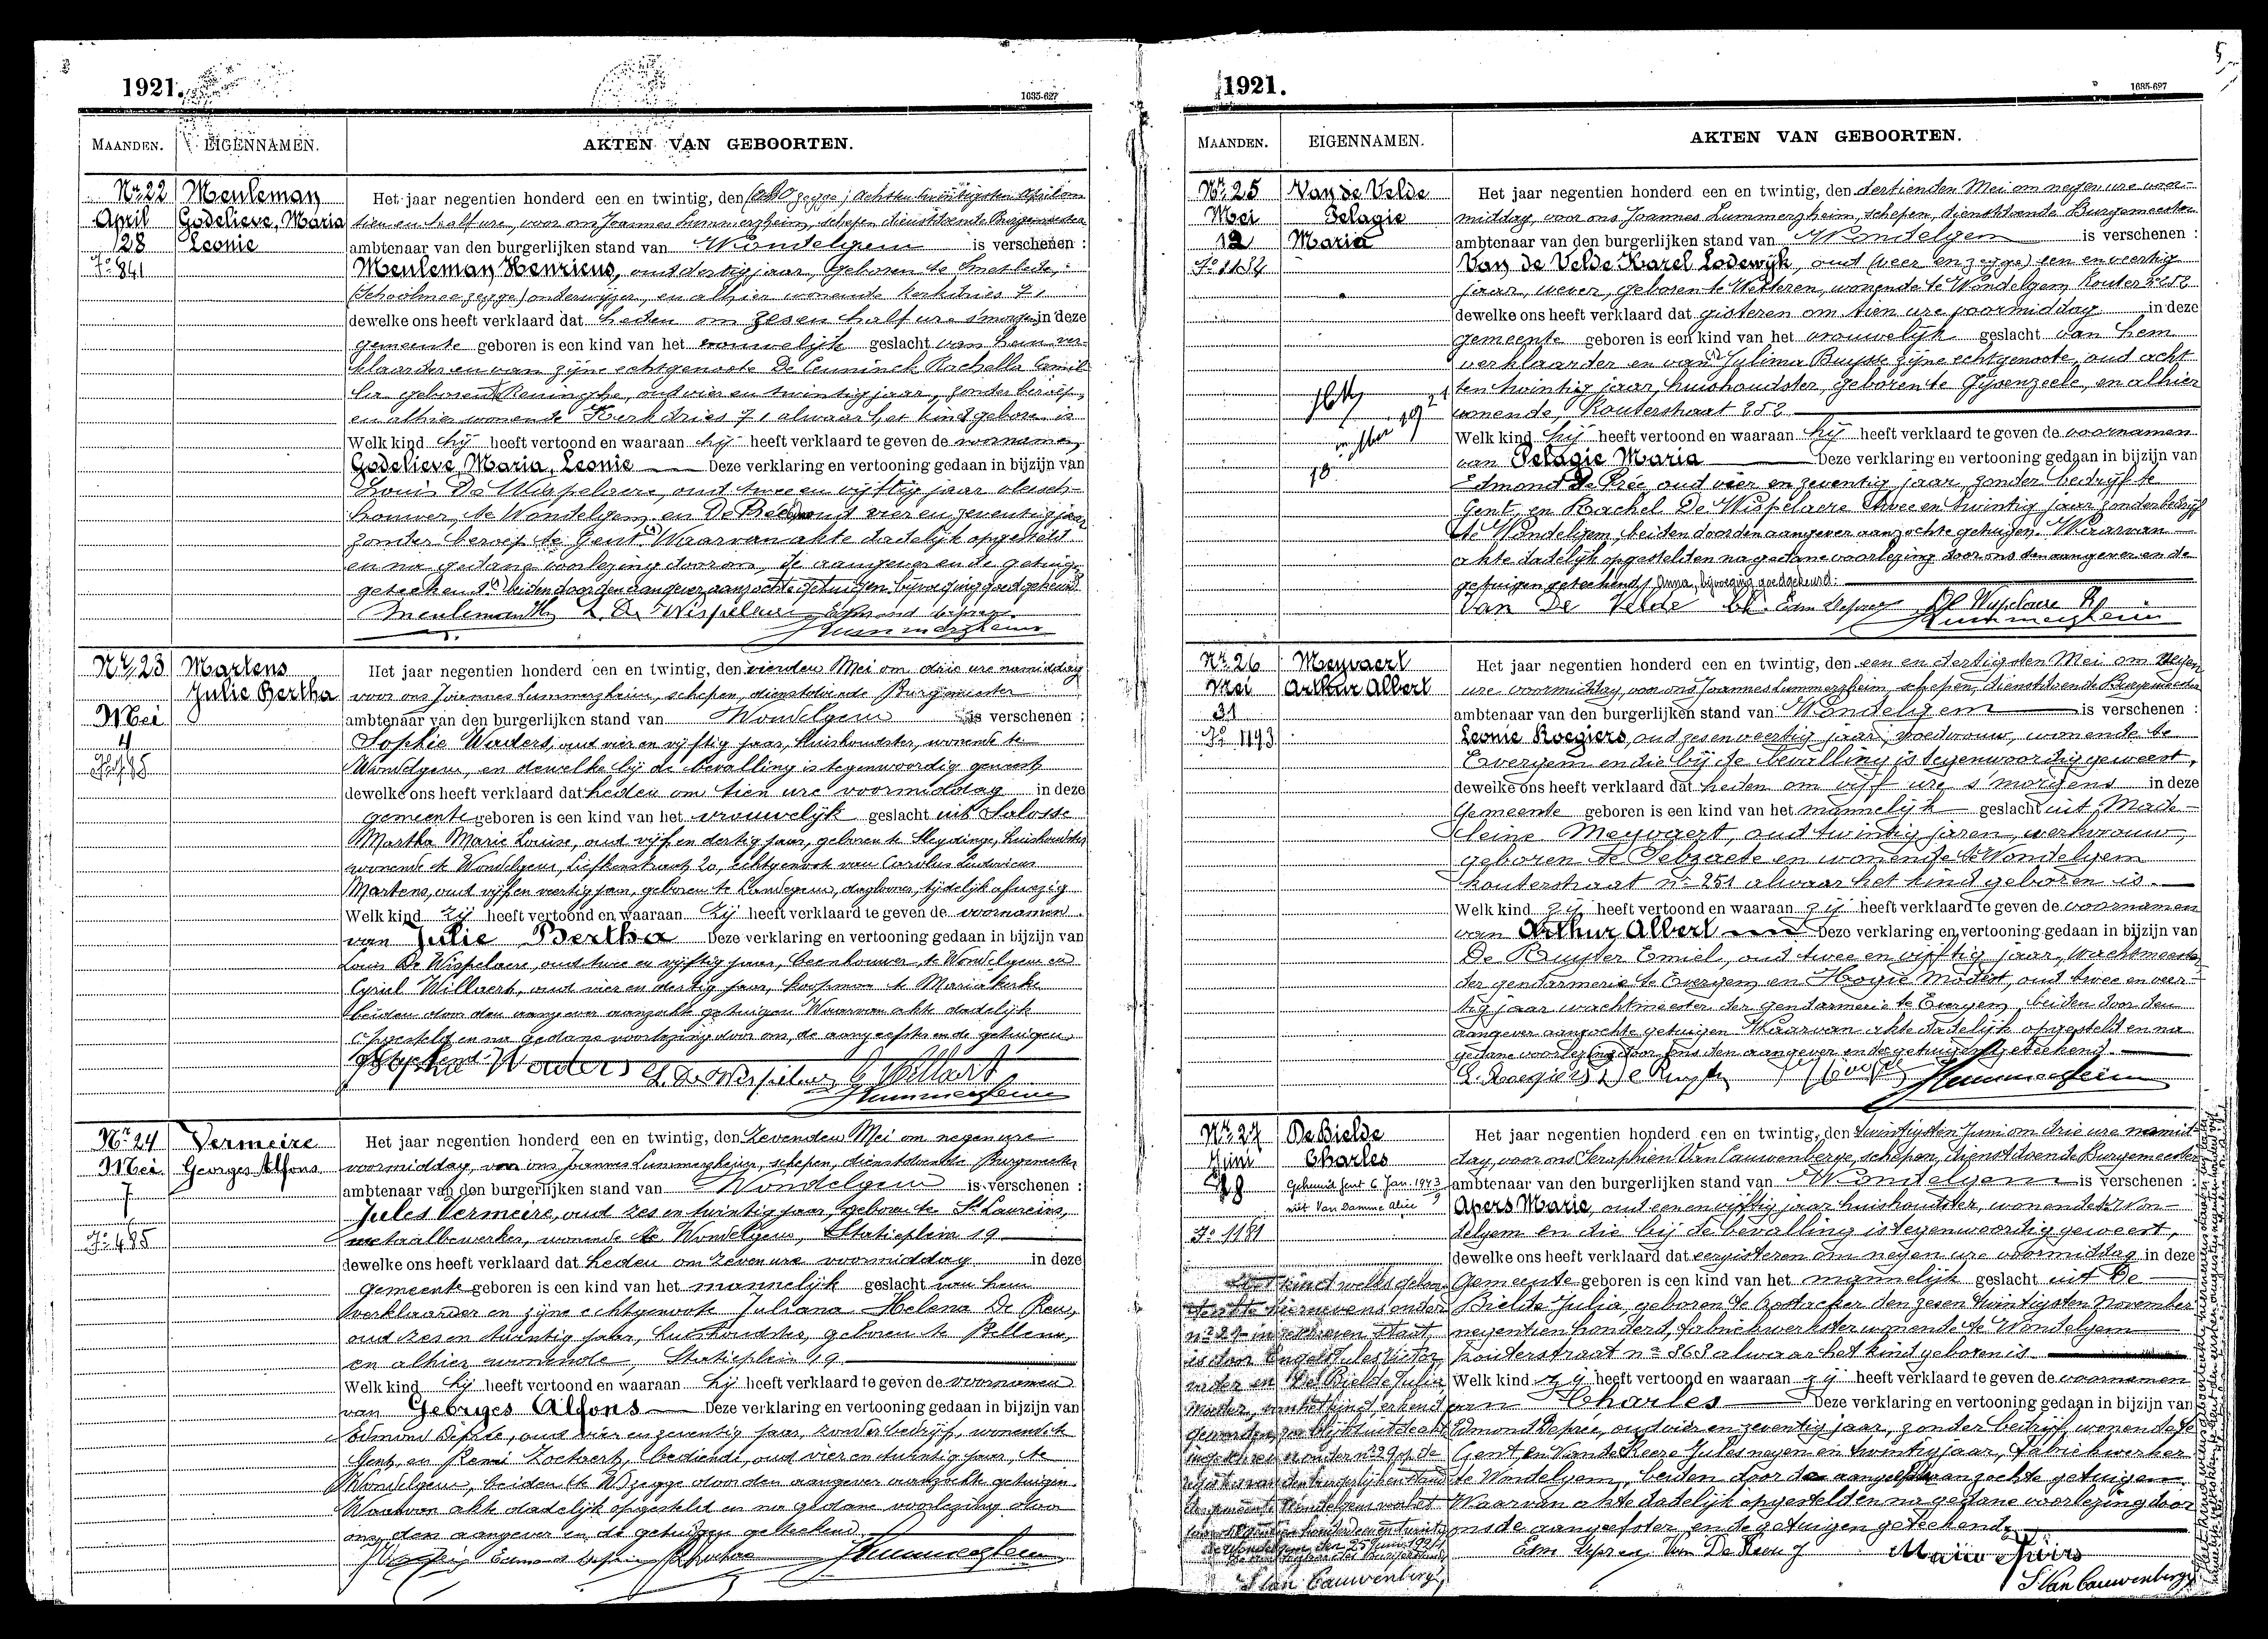 1921.
1635-627
MAANDEN.
EIGENNAMEN.
AKTEN VAN GEBOORTEN.
Nr 22
April
28
Meuleman
Godelieve, Maria
Leonie
Het jaar negentien honderd een en twintig, den (acht zegge) achsten twintigsten April om
tien en half ure, voor ons Joannes Lummerzheim, schepen dienstdoende Burgemeester
ambtenaar van den burgerlijken stand van Wondelgem is verschenen :
Meuleman Henricus, oud dertig jaar, geboren te Smetlede,
(Schoolmee zegge) onderwijzer, en alhier wonende Kerkdries 71
dewelke ons heeft verklaard dat heden om zesen half ure s'morgens in deze
gemeente geboren is een kind van het vrouwelijk geslacht van hem ver-
klaarder en van zijne echtgenoote De Ceuninck Rachella Camil-
la geboren te Reninghe, oud vier en twintig jaar, zonder beroep,
en alhier wonende Kerkdries 71 alwaar het kind geboren is
Welk kind hij heeft vertoond en waaraan hij heeft verklaard te geven de voornamen
Godelieve, Maria, Leonie Deze verklaring en vertooning gedaan in bijzijn van
Louis De Wispelaere, oud twee en vijftig jaar vleesch-
houwer, te Wondelgem en De Pree oud vier en zeventig jaar
zonder beroep te Gent Waarvan akte dadelijk opgesteld
en na gedane voorlezing door ons, de aangever en de getuigen
geteekend. beiden door den aangever aanzochte getuigen bijvoeging goedgekeurd
Meuleman H L. De Wispelaere Edmond Depree
Lummerzheim
Nr 23
Mei
4
Martens
Julie Bertha
Het jaar negentien honderd een en twintig, den vierden Mei om drie ure namiddag
voor ons Joannes Lummerzheim, schepen, dienstdoende Burgemeester
ambtenaar van den burgerlijken stand van Wondelgem is verschenen :
Sophie Wauters, oud vier en vijftig jaar, huishoudster, wonende te
Wondelgem, en dewelke bij de bevalling is tegenwoordig geweest,
dewelke ons heeft verklaard dat heden om tien ure voormiddag in deze
gemeente geboren is een kind van het vrouwelijk geslacht uit
Martha Marie Louise, oud vijf en dertig jaar, geboren te Sleydinge, huishoudster
wonende te Wondelgem, Liefkenstraat, 20, echtgenoot van Carolus Ludovicus
Martens, oud vijf en veertig jaar, geboren te Landegem, daglooner, tijdelijk afwezig
Welk kind zij heeft vertoond en waaraan zij heeft verklaard te geven de voornamen
van Julie Bertha Deze verklaring en vertooning gedaan in bijzijn van
Louis De Wispelaere, oud twee en vijftig jaar, beenhouwer, te Wondelgem en
Cyriel Willaert, oud vier en dertig jaar, koopman te Mariakerke
beiden door den aangever aanzocht getuigen Waarvan akte dadelijk
opgesteld en na gedane voorlezing door ons, de aangeefster en de getuigen
geteekend.
Sophie Wauters L. De Wispelaere C Willaert
Lummerzheim
Nr 24
Mei
7
Fo 485
Vermeire
Georges Alfons
Het jaar negentien honderd een en twintig, den zevenden Mei om negen ure
voormiddag, voor ons Joannes Lummerzheim, schepen, dienstdoende Burgemeester
ambtenaar van den burgerlijken stand van Wondelgem is verschenen :
Jules Vermeire, oud zes en twintig jaar, geboren te St Laureins,
metaalbewerker, wonende te Wondelgem, Statieplein 19
dewelke ons heeft verklaard dat heden om zeven ure voormiddag in deze
gemeente geboren is een kind van het mannelijk geslacht van hem
verklaarder en zijne echtgenoote Juliana Helena De Reu,
oud zes en twintig jaar, huishoudster, geboren te Bellem,
en alhier wonende, Statieplein 19
Welk kind hij heeft vertoond en waaraan hij heeft verklaard te geven de voornamen
van Georges Alfons Deze verklaring en vertooning gedaan in bijzijn van
Edmond Depree, oud vier en zeventig jaar, zonder bedrijf, wonende te
Gent, en Remi Zoetaert, bediende, oud vier en twintig jaar, te
Wondelgem, beiden (te W) zegge door den aangever aanzochte getuigen.
Waarvan akte dadelijk opgesteld en na gedane voorlezing door
ons, den aangever en de getuigen geteekend.
Lummerzheim
1921.
1635-627
MAANDEN.
EIGENNAMEN.
AKTEN VAN GEBOORTEN.
Nr 25
Mei
12
Van de Velde
Pelagie
Maria
Het jaar negentien honderd een en twintig, den dertienden Mei om negen ure voor-
middag, voor ons Joannes Lummerzheim, schepen, dienstdoende Burgemeester
ambtenaar van den burgerlijken stand van Wondelgem is verschenen :
Van de Velde Karel Lodewijk, oud (veer en zegge) een en veertig
jaar, wever, geboren te Wetteren, wonende te Wondelgem, Kouter 252
dewelke ons heeft verklaard dat gisteren om tien ure voormiddag in deze
gemeente geboren is een kind van het vrouwelijk geslacht van hem
verklaarder en van Julima Buysse zijne echtgenoote, oud acht
ten twintig jaar, huishoudster, geboren te Gysenzeele, en alhier
wonende, Kouterstraat 252
Welk kind hij heeft vertoond en waaraan hij heeft verklaard te geven de voornamen
van Pelagie Maria Deze verklaring en vertooning gedaan in bijzijn van
Edmond De Prée oud vier en zeventig jaar, zonder bedrijf te
Gent, en Rachel De Wispelaere twee en twintig jaar zonder bedrijf
te Wondelgem, beiden door den aangever aanzochte getuigen. Waarvan
akte dadelijk opgesteld en na gedane voorlezing door ons den aangever en de
getuigen geteekend, Anna, bijvoeging goedgekeurd.
Van De Velde Ch. Edm Depree De Wispelaere R
Lummerzheim
Nr 26
Mei
31
Fo 1193
Meyvaert
Arthur Albert
Het jaar negentien honderd een en twintig, den een en dertigsten Mei om negen
ure voormiddag, voor ons Joannes Lummerzheim, schepen, dienstdoende Burgemeester
ambtenaar van den burgerlijken stand van Wondelgem is verschenen :
Leonie Roegiers, oud zesenveertig jaar, vroedvrouw, wonende te
Evergem en die bij de bevalling is tegenwoordig geweest,
dewelke ons heeft verklaard dat heden om vijf ure s'morgens in deze
Gemeente geboren is een kind van het mannelijk geslacht uit Made-
leine Meyvaert, oud twintig jaren, werkvrouw,
geboren te Selzaete en wonende te Wondelgem
Kouterstraat nr 251 alwaar het kind geboren is.
Welk kind zij heeft vertoond en waaraan zij heeft verklaard te geven de voornamen
van Arthur Albert Deze verklaring en vertooning gedaan in bijzijn van
De Ruyter Emiel, oud twee en vijftig jaar, Wachtmeester
der gendarmerie te Evergem, en Hogie Modest, oud twee en veer-
tig jaar wachtmeester der gendarmerie te Evergem, beiden door den
aangever aanzochte getuigen Waarvan akte dadelijk opgesteld en na
gedane voorlezing door ons den aangever en de getuigen geteekend.
L. Roegiers De Ruyter Hogie
Lummerzheim
Nr 27
Juni
18
Fo 1181
De Bielde
Charles
Gehuwd Gent 6 Jan. 1943
met Van Damme Alice
Het jaar negentien honderd een en twintig, den twintigsten Juni om drie ure namid-
dag, voor ons Seraphien Van Cauwenberge, schepen, dienstdoende Burgemeester
ambtenaar van den burgerlijken stand van Wondelgem is verschenen :
Apers Marie, oud een en vijftig jaar huishoudster, wonende te Won-
delgem en die bij de bevalling is tegenwoordig geweest,
dewelke ons heeft verklaard dat eergisteren om negen ure voormiddag in deze
Gemeente geboren is een kind van het mannelijk geslacht uit De
Bielde Julia, geboren te Oostacker den zesen twintigsten November
negentien honderd, fabriekwerkster wonende te Wondelgem
Kouterstraat nr 368 alwaar het kind geboren is
Welk kind zij heeft vertoond en waaraan zij heeft verklaard te geven de voornamen
van Charles Deze verklaring en vertooning gedaan in bijzijn van
Edmond Depree, oud vier en zeventig jaar, zonder bedrijf, wonende te
Gent, en Van de Keere Jules negen en twintig jaar, fabriekwerker
te Wondelgem, beiden door de aangeefster aanzochte getuigen.
Waarvan akte dadelijk opgesteld en na gedane voorlezing door
ons de aangeefster en de getuigen geteekend.
Edm Depree
S. Van Cauwenberge
S. Van Cauwenberge